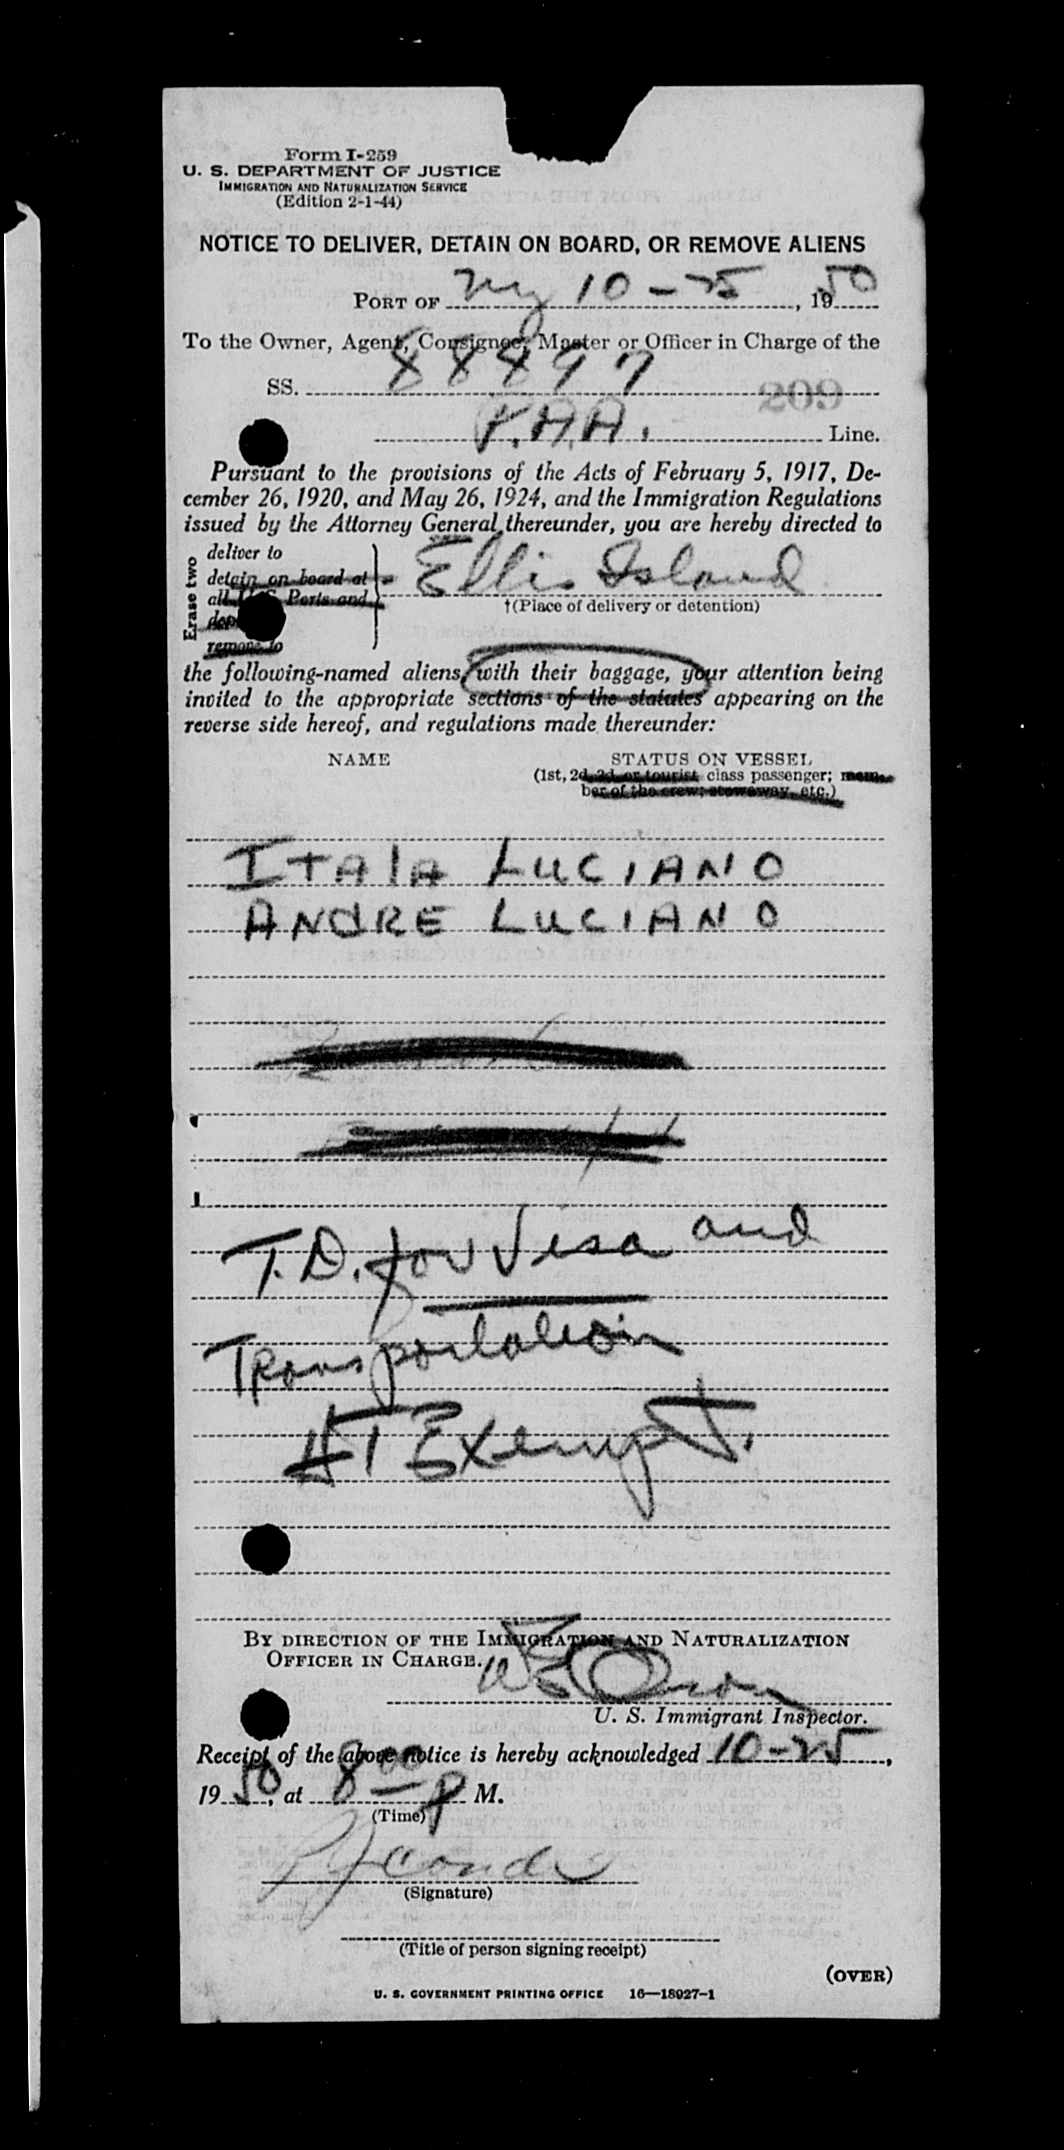 Form I-259
U. S. DEPARTMENT OF JUSTICE
IMMIGRATION AND NATURALIZATION SERVICE
(Edition 2-1-44)
NOTICE TO DELIVER, DETAIN ON BOARD, OR REMOVE ALIENS
PORT OF NY 10-25, 1950
To the Owner, Agent, Consignee, Master or Officer in Charge of the
SS. 88897
209
P.A.A. Line.
Pursuant to the provisions of the Acts of February 5, 1917, De-
cember 26, 1920, and May 26, 1924, and the Immigration Regulations
issued by the Attorney General thereunder, you are hereby directed to
Erase two
deliver to
detain on board at
all U.S. Ports and
remove to
Ellis Island
†(Place of delivery or detention)
the following-named aliens, with their baggage, your attention being
invited to the appropriate sections of the statutes appearing on the
reverse side hereof, and regulations made thereunder:
NAME STATUS ON VESSEL
(1st, 2d, 3d, or tourist class passenger; mem-
ber of the crew; stowaway, etc.)
ITALA LUCIANO
ANDRE LUCIANO
T.D. for Visa and
Transportation
HT Exempt.
BY DIRECTION OF THE IMMIGRATION AND NATURALIZATION
OFFICER IN CHARGE.
U. S. Immigrant Inspector.
Receipt of the above notice is hereby acknowledged 10-25,
1950, at 8 00 P M.
(Time)
(Signature)
(Title of person signing receipt)
(OVER)
U. S. GOVERNMENT PRINTING OFFICE 16—18927-1